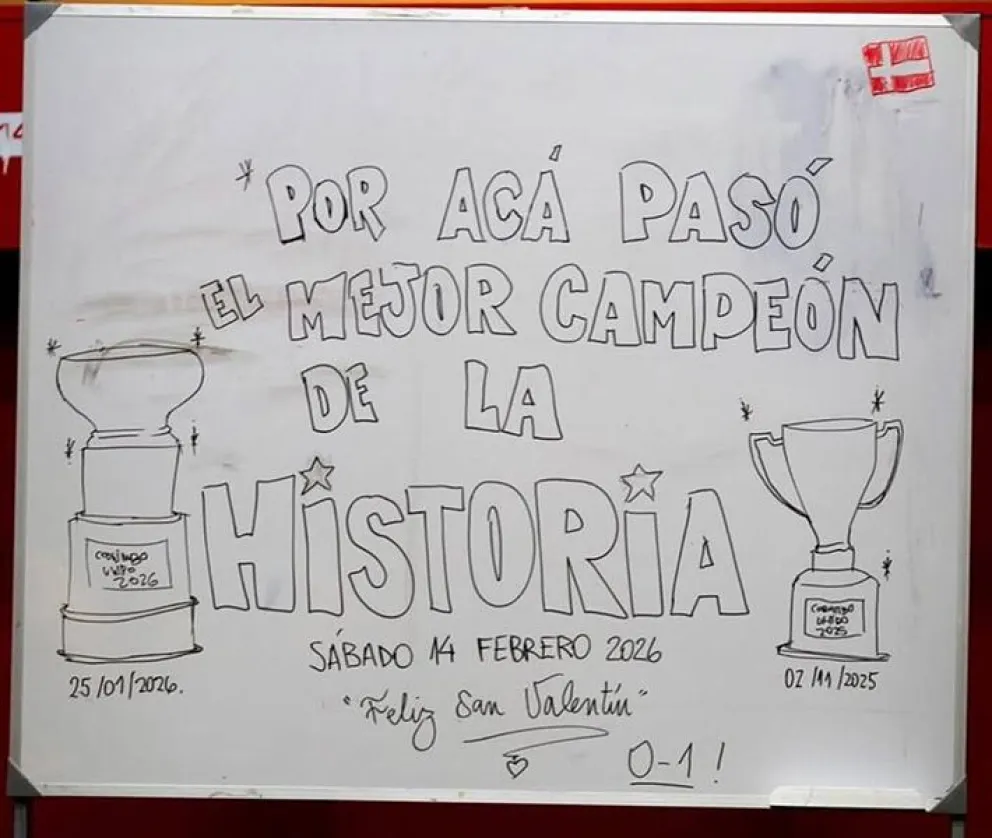 POR ACÁ PASÓ
EL MEJOR CAMPEÓN
DE LA
HiSTORiA
COQUIMBO
UNIDO
2026
COQUIMBO
UNIDO
2025
SÁBADO 14 FEBRERO 2026
25/01/2026.
02/11/2025
"Feliz San Valentín"
0-1!